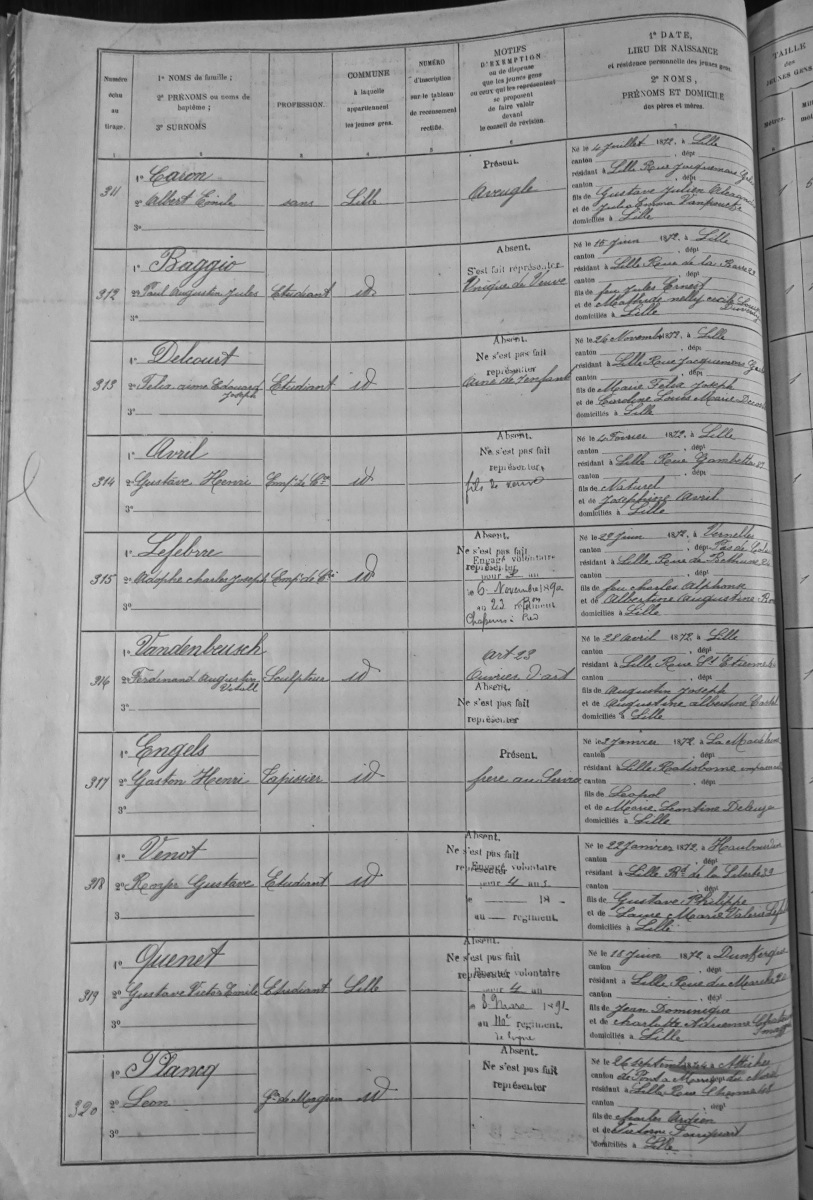 Numéro échu au tirage.
1° NOMS de famille ;
2° PRÉNOMS ou noms de baptême ;
3° SURNOMS
PROFESSION.
COMMUNE à laquelle appartiennent les jeunes gens.
NUMÉRO d'inscription sur le tableau de recensement rectifié.
MOTIFS D'EXEMPTION ou de dispense que les jeunes gens ou ceux qui les représentent se proposent de faire valoir devant le conseil de révision.
1° DATE, LIEU DE NAISSANCE et résidence personnelle des jeunes gens.
2° NOMS, PRÉNOMS ET DOMICILE des pères et mères.
TAILLE
des
Mètres.
311
1° Caron
2° Albert Emile
3°
sans
Lille
Présent.
Aveugle
Né le 4 Juillet 1872, à Lille
canton , dépt
résidant à Lille Rue Jacquemars
canton , dépt
fils de Gustave Julien
et de Julie Emma
domiciliés à Lille
312
1° Baggio
2° Paul Augustin Jules
3°
Etudiant
id
Absent.
S'est fait représenter
Unique de Veuve
Né le 15 Juin 1872, à Lille
canton , dépt
résidant à Lille Rue de la Barre
canton , dépt
fils de feu Jules Ernest
et de Mathilde nelly
domiciliés à Lille
313
1° Delcourt
2° Félix aimé Edouard Joseph
3°
Etudiant
id
Absent.
Ne s'est pas fait
représenter
Ainé de
Né le 26 Novembre 1872, à Lille
canton , dépt
résidant à Lille Rue Jacquemars
canton , dépt
fils de Marie Felix Joseph
et de Caroline Louise Marie
domiciliés à Lille
314
1° Avril
2° Gustave Henri
3°
Emp. de Ce
id
Absent.
Ne s'est pas fait
représenter
fils de veuve
Né le 4 Fevrier 1872, à Lille
canton , dépt
résidant à Lille Rue Gambetta
canton , dépt
fils de Naturel
et de Josephine Avril
domiciliés à Lille
315
1° Lefebvre
2° Adolphe charles Joseph
3°
Emp. de Ce
id
Absent.
Ne s'est pas fait
représenter
Engagé volontaire
pour an
le 6 Novembre 1890
au 23 régiment
Chasseurs à Pied
Né le 29 Juin 1872, à Vermelles
canton , dépt Pas de Calais
résidant à Lille Rue de Bethune
canton , dépt
fils de feu charles Alphonse
et de Albertine Augustine
domiciliés à Lille
316
1° Vandenbeusch
2° Ferdinand Augustin
3°
Sculpteur
id
Art 23
Ouvrier d'art
Absent.
Ne s'est pas fait
représenter
Né le 28 avril 1872, à Lille
canton , dépt
résidant à Lille Rue St Etienne
canton , dépt
fils de Augustin Joseph
et de Augustine albertine
domiciliés à Lille
317
1° Engels
2° Gaston Henri
3°
Tapissier
id
Présent.
frere au Service
Né le 3 Janvier 1872, à La Madeleine
canton , dépt
résidant à Lille Ratisbonne
canton , dépt
fils de Léopol
et de Marie Leontine
domiciliés à Lille
318
1° Venot
2° Gustave
3
Etudiant
id
Absent.
Ne s'est pas fait
représenter
Engagé volontaire
pour 4 ans
le 18
au régiment.
Né le 22 Janvier 1872, à Haubourdin
canton , dépt
résidant à Lille Bd de la Liberté
canton , dépt
fils de Gustave Philippe
et de Marie Valerie
domiciliés à Lille
319
1° Quenet
2° Gustave Victor Emile
3°
Etudiant
Lille
Absent.
Ne s'est pas fait
représenter
Engagé volontaire
pour 4 an
le 8 Mars 1891
au 110e régiment.
de ligne
Né le 15 Juin 1872, à Dunkerque
canton , dépt
résidant à Lille Rue du Marché
canton , dépt
fils de Jean Dominique
et de charlotte
domiciliés à Lille
320
1° Plancq
2° Leon
3°
de Magasin
id
Absent.
Ne s'est pas fait
représenter
Né le 26 septembre à Attiches
canton de Pont à Marcq dépt du Nord
résidant à Lille Rue
canton , dépt
fils de charles
et de
domiciliés à Lille